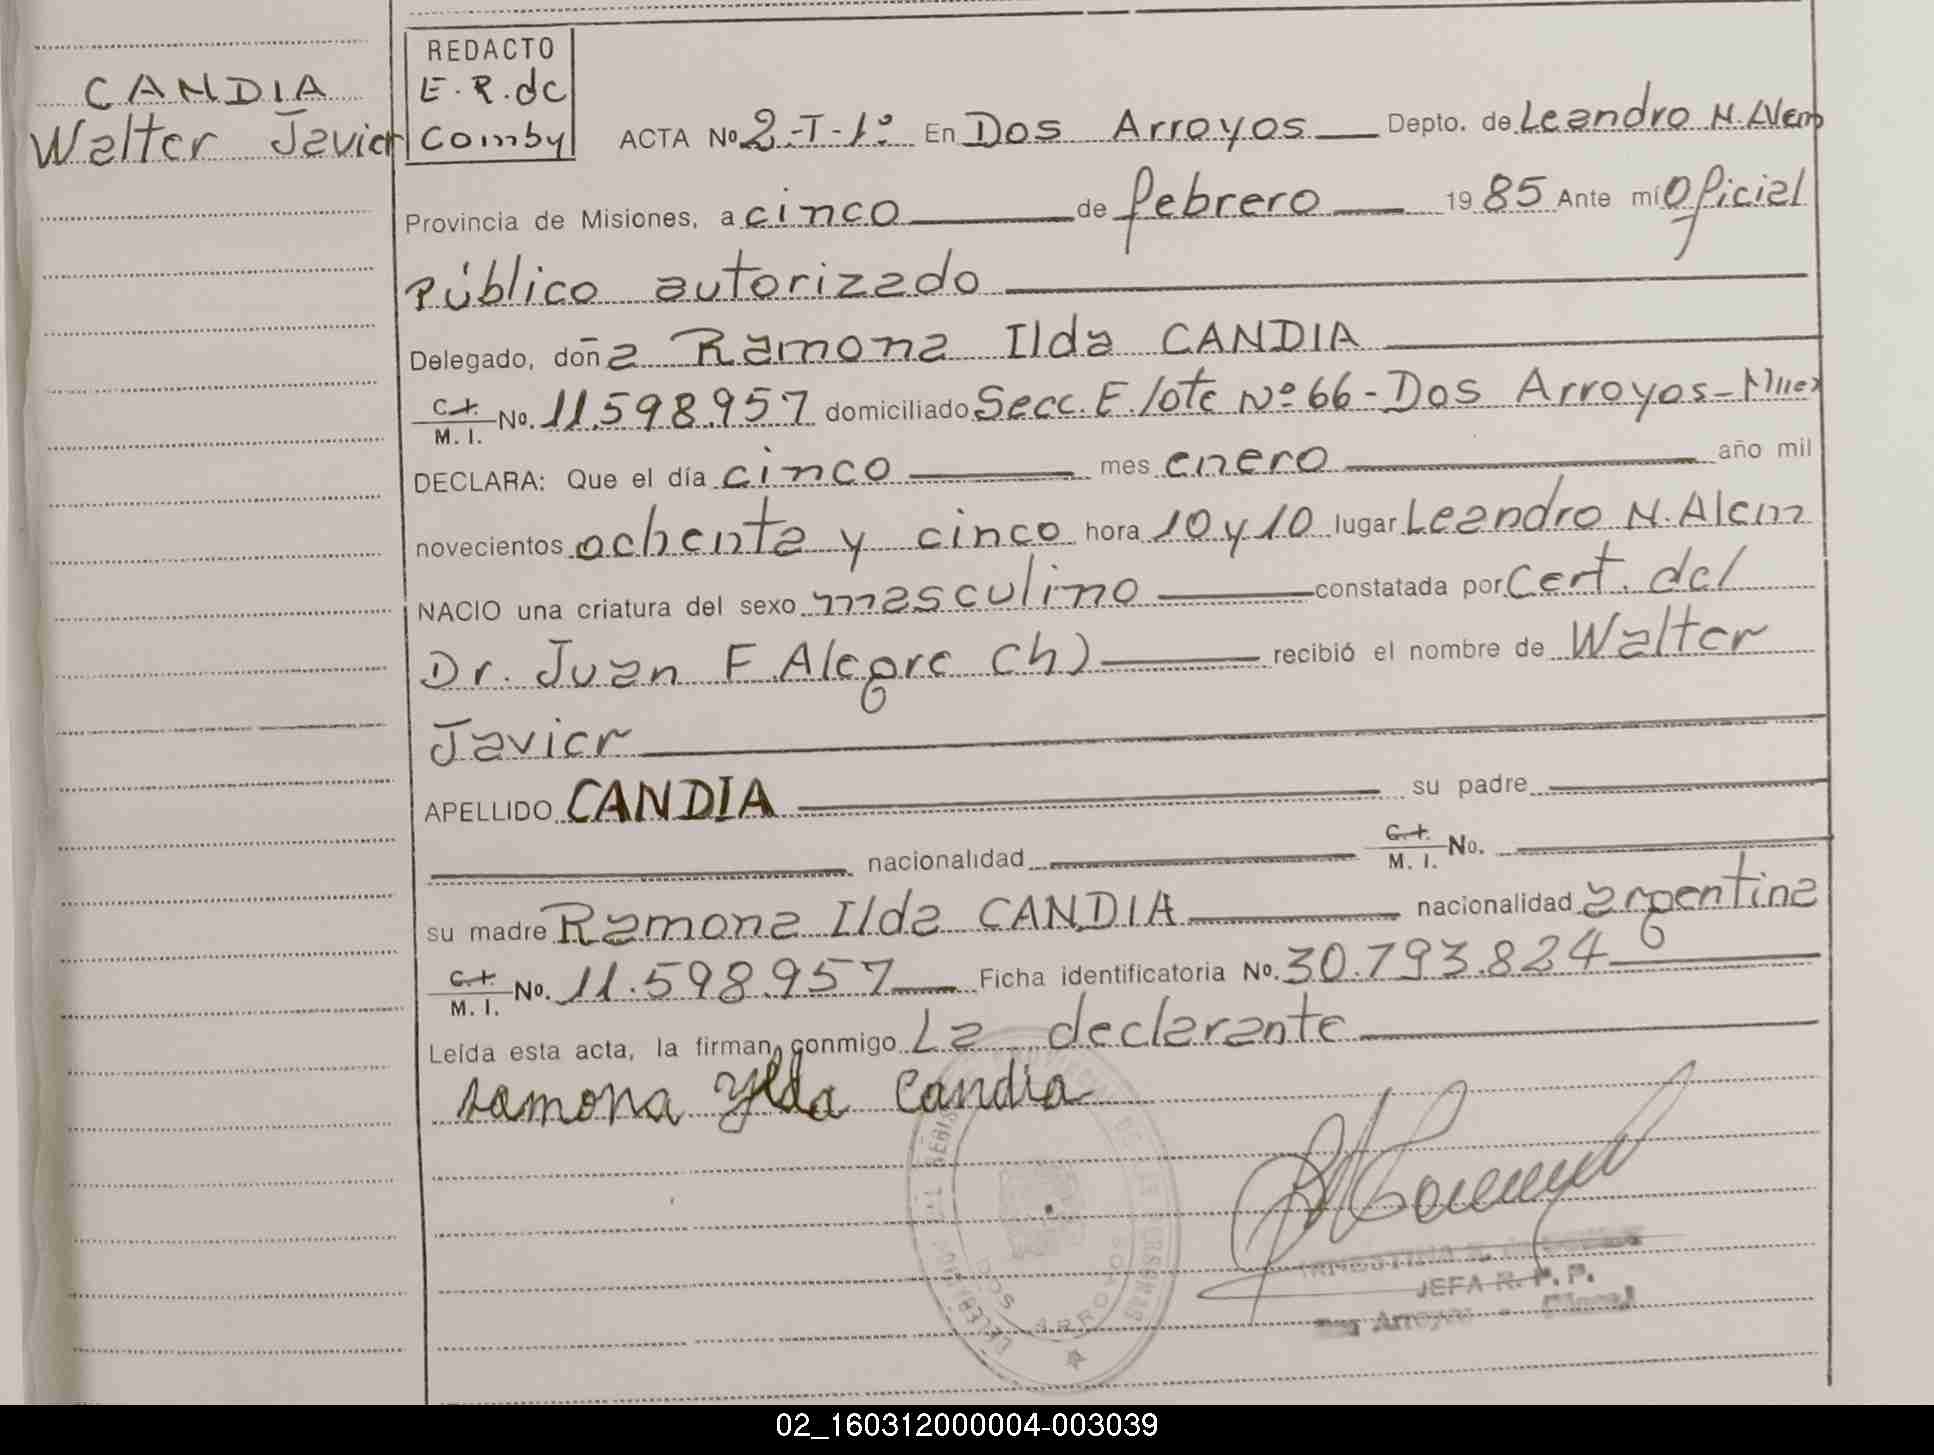 CANDIA
Walter Javier
REDACTO
E.R. de
Comby
ACTA No 2-T-1º En Dos Arroyos Depto. de Leandro N. Alem
Provincia de Misiones, a cinco de febrero 1985 Ante mí Oficial
Público autorizado
Delegado, doña Ramona Ilda CANDIA
C.I. M. I. No. 11.598.957 domiciliado Secc. E. lote Nº 66 - Dos Arroyos -
DECLARA: Que el día cinco mes enero año mil
novecientos ochenta y cinco hora 10 y 10 lugar Leandro N. Alem
NACIO una criatura del sexo masculino constatada por Cert. del
Dr. Juan F Alegre (h) recibió el nombre de Walter
Javier
APELLIDO CANDIA su padre
nacionalidad C.I. M. I. No.
su madre Ramona Ilda CANDIA nacionalidad argentina
C.I. M. I. No. 11.598.957 Ficha identificatoria No. 30.793.824
Leída esta acta, la firman conmigo La declarante
ramona Ylda Candia
DOS ARROYOS
JEFA R. P. P.
Dos Arroyos
02_160312000004-003039